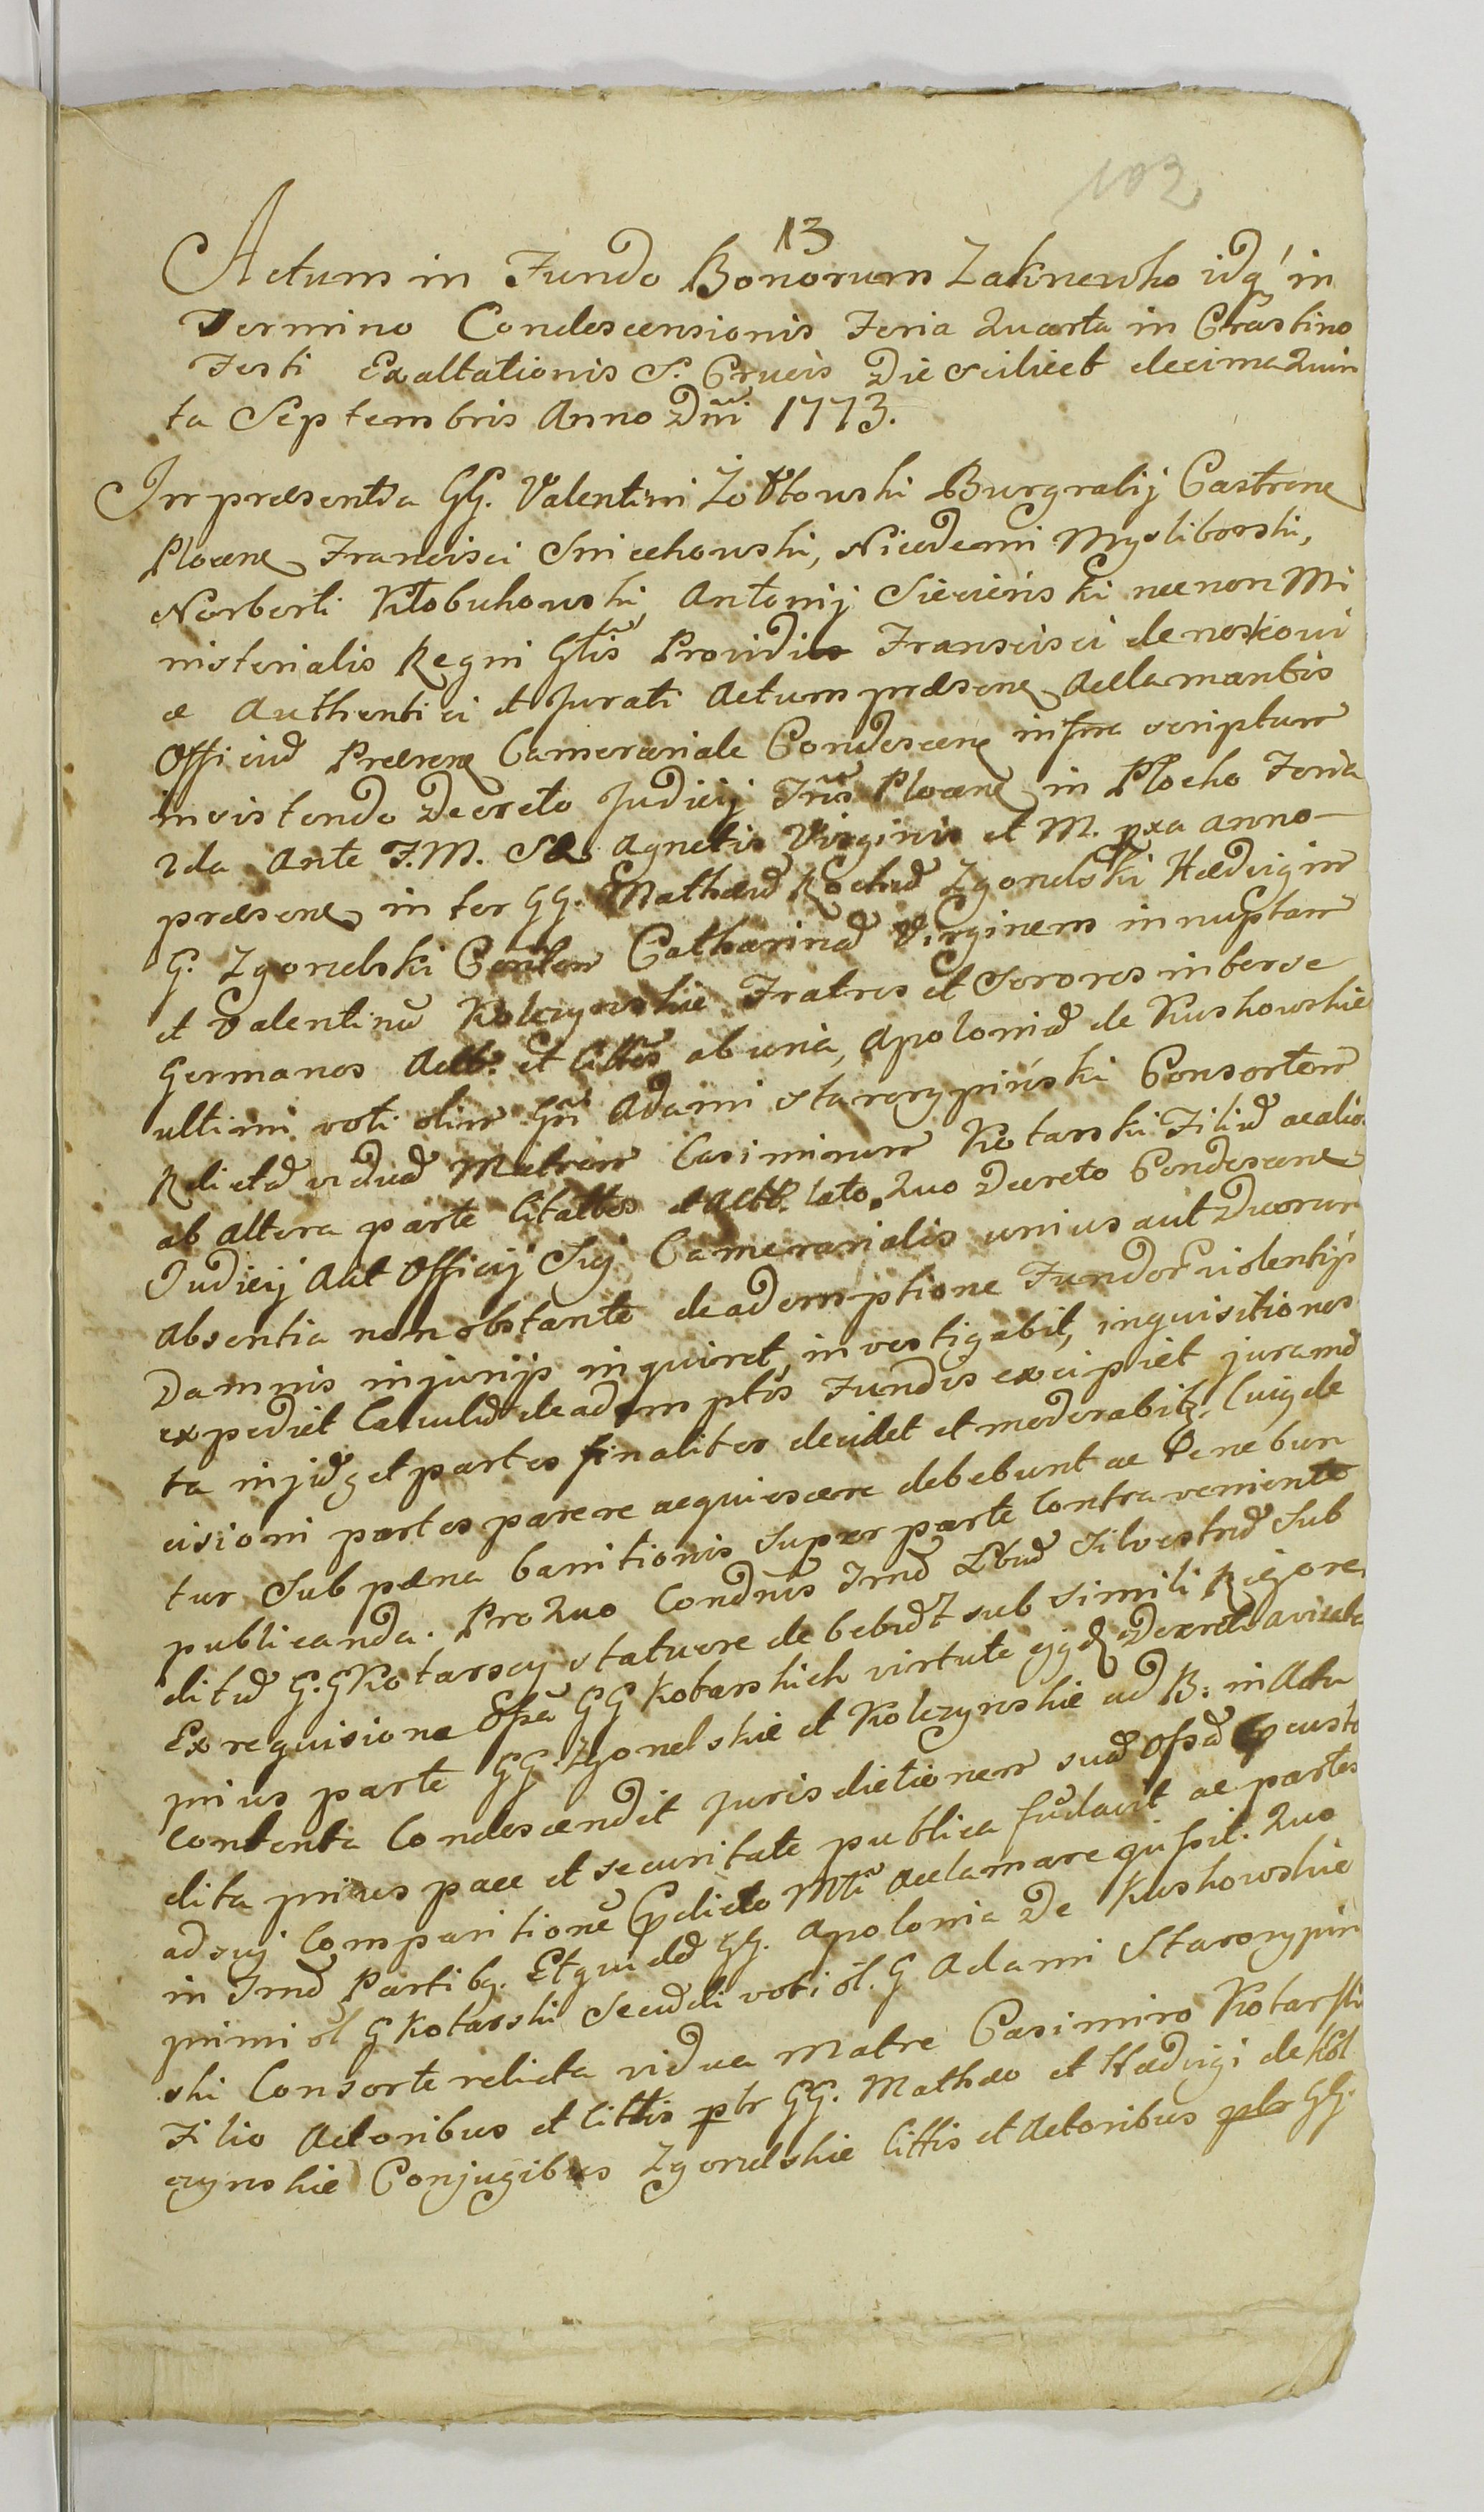 102
13
Actum in Fundo Bonorum Zaknewko idq́ in
Termino Condescensionis Feria Quarta in Crãstino
Festi Exaltationis S. Crucis Die scilicet decima Quin
ta Septembris Anno Dñi 1773.
In præsentia GG. Valentini Żółtowski Burgrabij Castrens
Plocens Francisci Smiechowski, Nicodemi Mysliborski,
Norberti Kłobukowski Antonij Siecieński necnon Mi
nisterialis Regni Gñlis Providi Francisci de noskowi
e Authentici et Jurati Actum præsens acclamantis
Officiũ Præsens Camerariale Condescens infra scriptum
insistendo Decreto Judicij Tr̃is Plocens in Plocko Feria
2da Ante F.M. S. Agnetis Virginis et M. pxa anno
præsens inter GG. Mathæũ Rochũ Zgorzelski Hædvigim
G. Zgorzelski Contem Catharinã Virginem innuptam
et Valentinũ Kolczynskie Fratres et Sorores inter se
Germanos Actt. et Citttos ab una, Apoloniã de Kuskowskie
ultimi voti olim Gñi Adami starorypiński Consortem
Relictã viduã Matrem Casimirum Kotarski Filiũ ac alio.
ab altera parte Citattos et Actt. lato. Quo Decreto Condescens
Judicij Aut Officij Sui Camerarialis unius aut Duorum
Absentia non obstante de ademptione Fundor violentijs
Damnis injurijs inquiret, investigabit, inquisitiones
expediet Calculũ de ademptis Fundis excipiet jurame
ta injũget partes finaliter decidet et moderabit. Cuiq de
cisioni partes parere acquiescere debebunt ac tenebun
tur sub pæna banitionis super parte Contraveniente
publicanda. Pro Quo Condñis Trnõ Lbũ Silvestrũ Sub
ditũ G.G Kotarscy statuere debebũt sub simili Rigore
Ex requisione Ofsa GG Kotarskich virtute ejqd Decreti avisata
prius parte GG. Zgorzelskie et Kolczynskie ad B: in Actu
contenta Condescendit Jurisdictionem suã Ofsã
dita prius pace et securitate publica fũdavit ac partes
ad sui Comparitionẽ Pdicto Mtr acclamare jussit. Quo
in Trnõ Partibq. Et quidẽ GG. Apolonia De Kuskowskie
primi ol G Kotarski Secũdi voti ol. G Adami Starorypin
ski Consorte relicta vidua Matre Casimiro Kotarski
Filio Actoribus et Cittis ptr GG. Mathæo et Hædvigi de Kol
czynskie Conjugibus Zgorzelskie Cittis et Actoribus ptr GG.